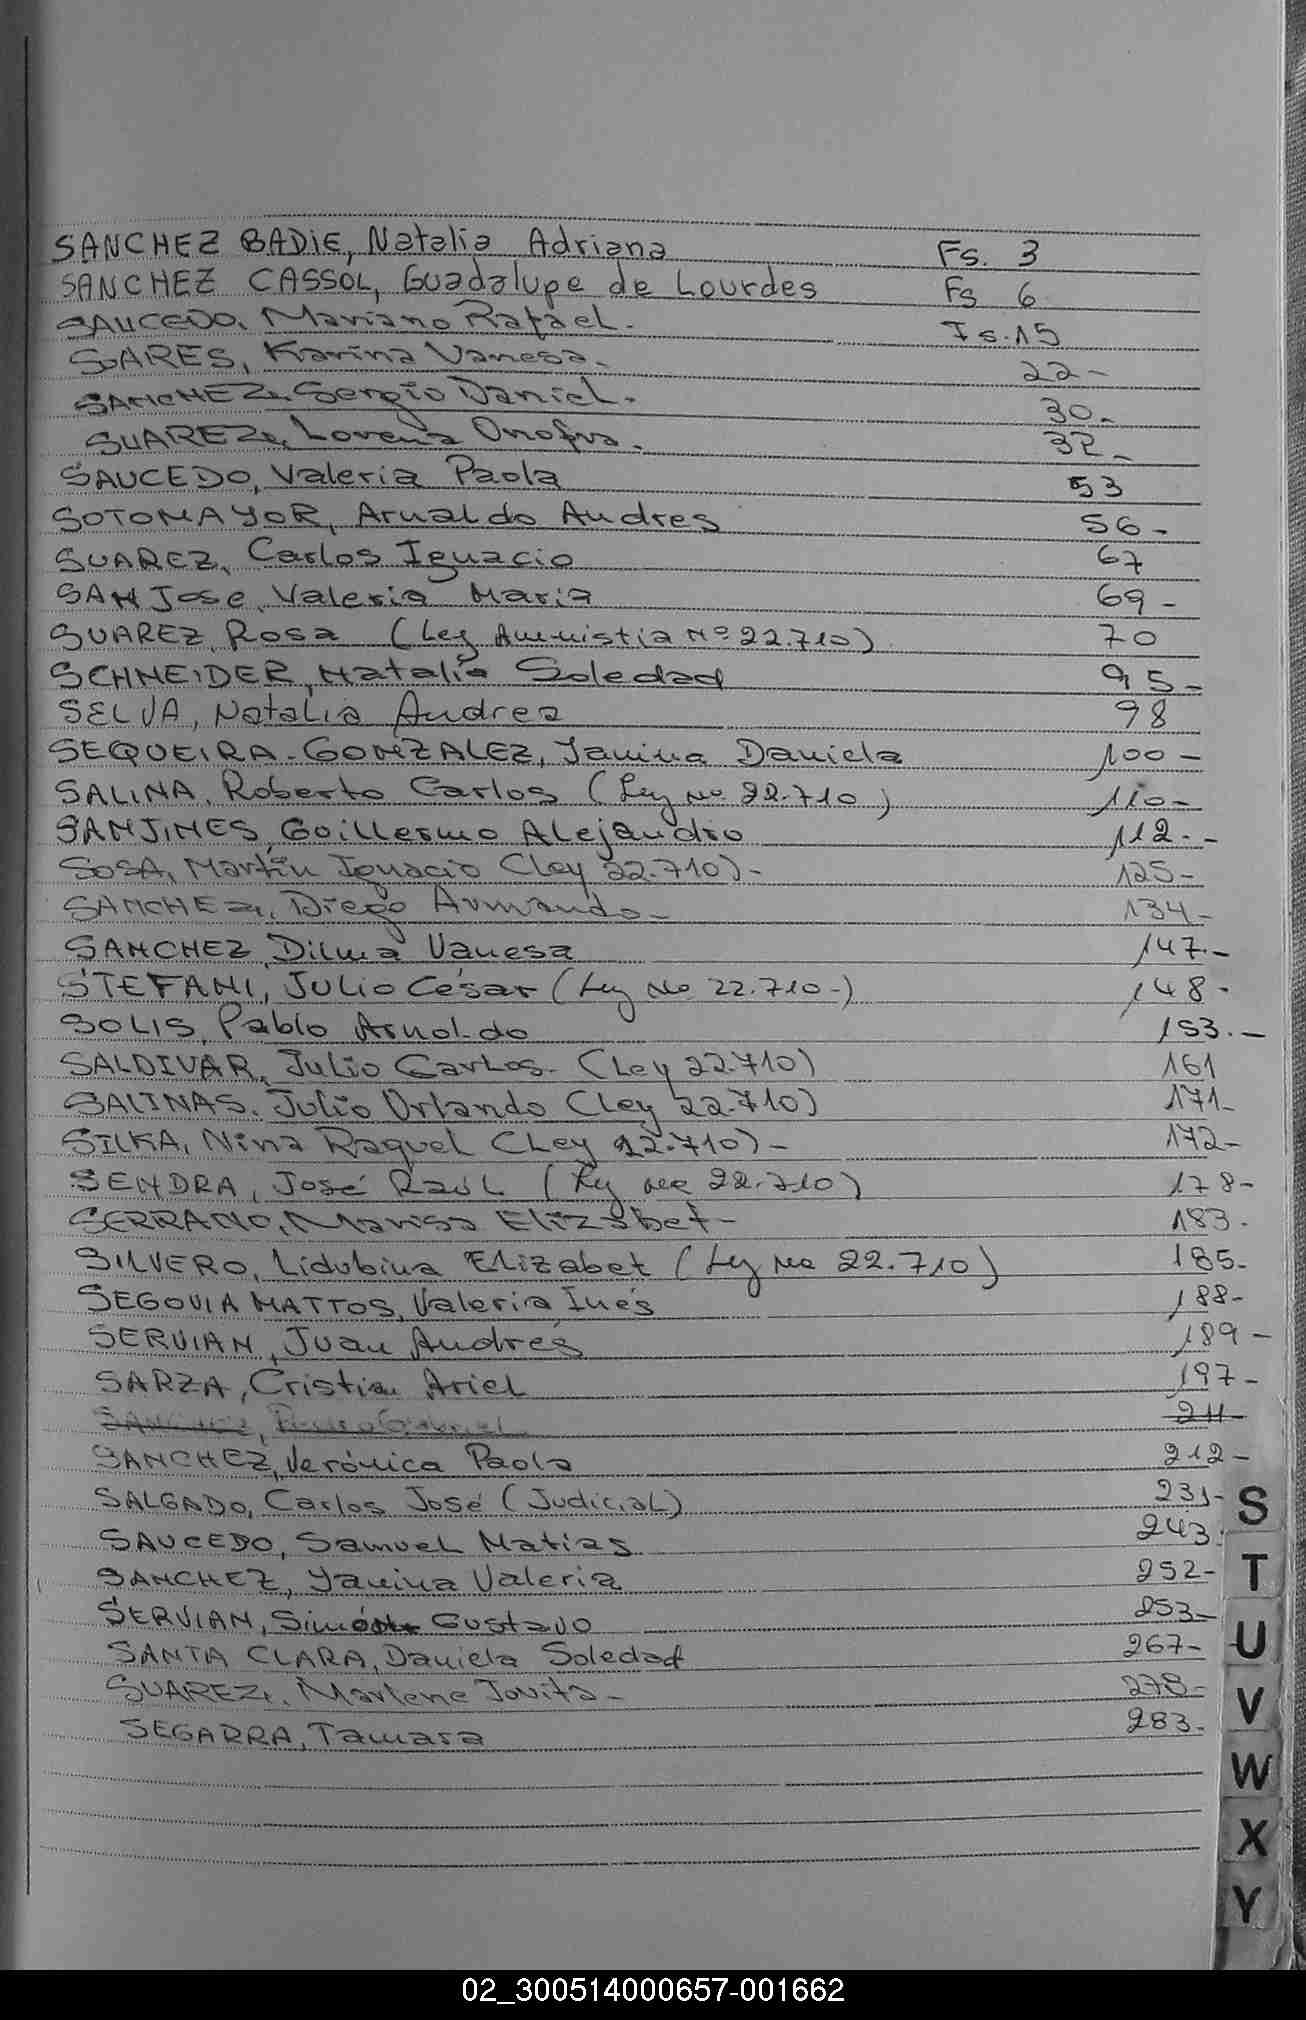 SANCHEZ BADIE, Natalia Adriana Fs. 3
SANCHEZ CASSOL, Guadalupe de Lourdes Fs 6
SAUCEDO, Mariano Rafael. Fs. 15
SOARES, Karina Vanesa. 22-
SANCHEZ, Sergio Daniel. 30-
SUAREZ, Lorena Onofra. 32-
SAUCEDO, Valeria Paola 53
SOTOMAYOR, Arnaldo Andres 56-
SUAREZ, Carlos Ignacio 67
SAN Jose, Valeria Maria 69-
SUAREZ, Rosa (Ley Amnistia Nº 22.710) 70
SCHNEIDER, Natalia Soledad 95-
SELVA, Natalia Andrea 98
SEQUEIRA-GONZALEZ, Janina Daniela 100-
SALINA, Roberto Carlos (Ley Nº 22.710) 110-
SANJINES, Guillermo Alejandro 112.-
SOSA, Martín Ignacio (Ley 22.710)- 125-
SANCHEZ, Diego Armando- 134-
SANCHEZ, Dilma Vanesa 147.-
STEFANI, Julio César (Ley No 22.710-) 148-
SOLIS, Pablo Arnoldo 153.-
SALDIVAR, Julio Carlos- (Ley 22.710) 161
SALINAS, Julio Orlando (Ley 22.710) 171-
SILKA, Nina Raquel (Ley 22.710)- 172-
SENDRA, José Raúl (Ley Nº 22.710) 178-
SERRANO, Marisa Elizabet- 183-
SILVERO, Lidubina Elizabet (Ley No 22.710) 185-
SEGOVIA MATTOS, Valeria Inés 188-
SERVIAN, Juan Andrés 189-
SARZA, Cristian Ariel 197-
211-
SANCHEZ, Verónica Paola 212-
SALGADO, Carlos José (Judicial) 231-
SAUCEDO, Samuel Matias 243.
SANCHEZ, Yanina Valeria 252-
SERVIAN, Simón Gustavo 253-
SANTA CLARA, Daniela Soledad 267-
SUAREZ, Marlene Jovita- 278-
SEGARRA, Tamara 283-
S
T
U
V
W
X
Y
02_300514000657-001662